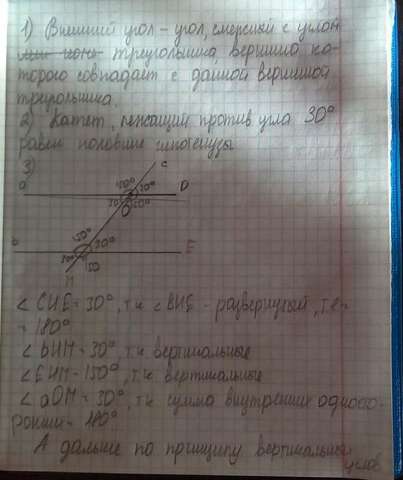 1) Внешний угол - угол, смежный с углом
треугольника, вершина ко-
торого совпадает с данной вершиной
треугольника.
2) Катет, лежащий против угла 30°
равен половине гипотенузы
3)
C
D
30°
O
E
30°
M
∠ CHE = 30°, т.к ∠ BHE - развернутый, т.е =
= 180°
∠ bHM = 30°, т.к. вертикальные
∠ EHM = 150°, т.к. вертикальные
∠ aOM = 30°, т.к сумма внутренних односто-
ронних = 180°
А дальше по принципу вертикальных
углов